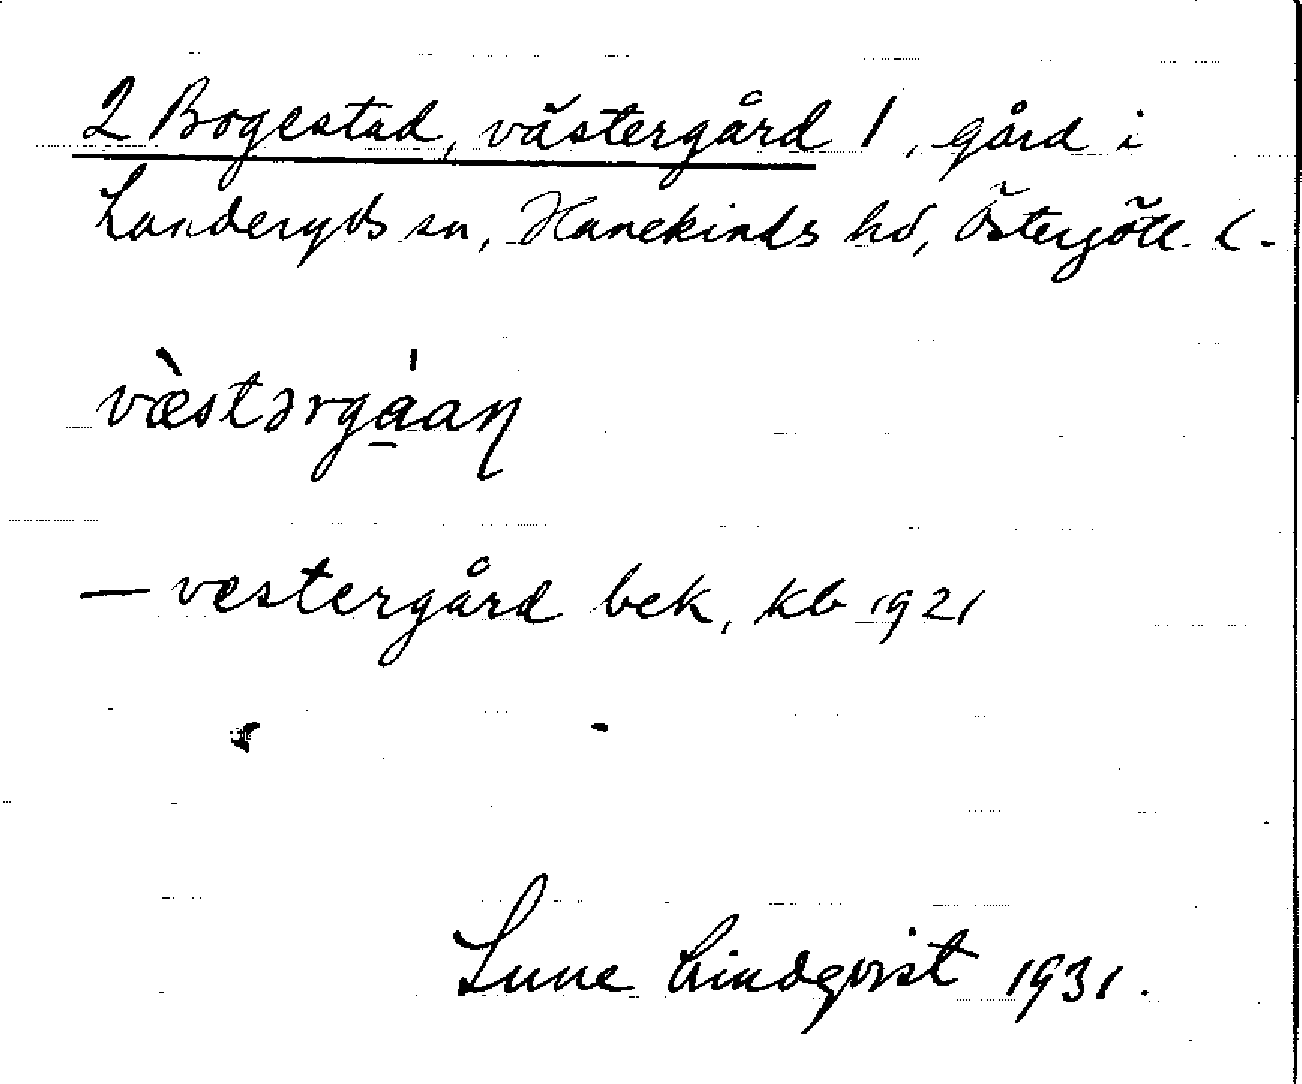 2 Bogestad, västergård 1, gård i
Landeryds sn, Hanekinds hd, Östergötl. l.
væ̀stərga̠̍aɳ
— vestergård bek, kb 1921
Sune Lindqvist 1931.